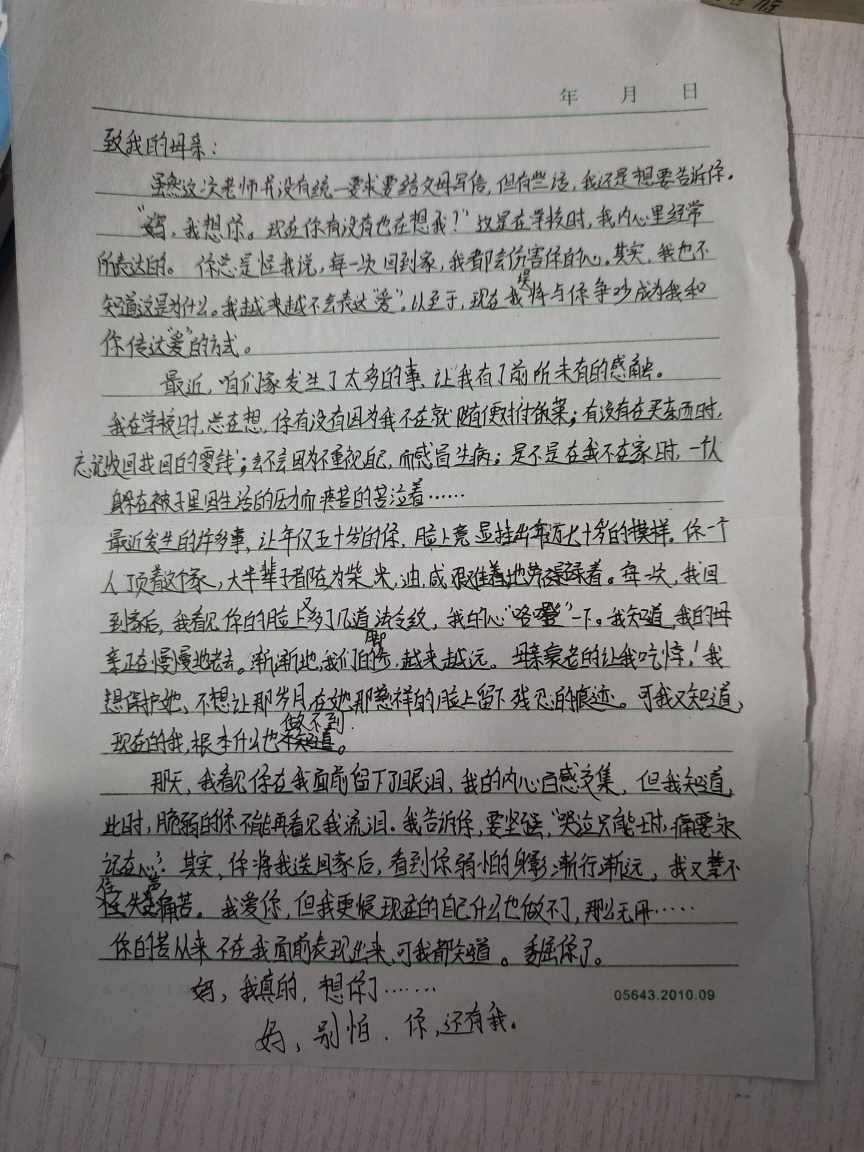 年 月 日
致我的母亲：
虽然这次老师并没有统一要求要给父母写信，但有些话，我还是想要告诉你。
"妈，我想你。现在你有没有也在想我？"这是在学校时，我内心里经常
所表达的。你总是怪我说，每一次回到家，我都会伤害你的心。其实，我也不
知道这是为什么。我越来越不会表达"爱"。以至于，现在我误将与你争吵成为我和
你传达"爱"的方式。
最近，咱们家发生了太多的事，让我有了前所未有的感触。
我在学校时，总在想，你有没有因为我不在就随便对付饭菜；有没有在买东西时，
忘记收回找回的零钱；会不会因为不重视自己，而感冒生病；是不是在我不在家时，一个人
躲在被子里因生活的压力而痛苦的哭泣着……
最近发生的许多事，让年仅五十岁的你，脸上竟显挂出年近七十岁的模样。你一个
人顶着这个家，大半辈子都在为柴，米，油，盐艰难地劳碌着。每一次，我回
到家后，我看见你的脸上又多了几道法令纹，我的心"咯噔"一下。我知道，我的母
亲正在慢慢地老去。渐渐地，我们的脚步，越来越远。母亲衰老的让我吃惊！我
想保护她，不想让那岁月，在她那慈祥的脸上留下残忍的痕迹。可我又知道，
现在的我，根本什么也做不到。
那天，我看见你在我面前留下了眼泪，我的内心百感交集，但我知道，
此时，脆弱的你不能再看见我流泪。我告诉你，要坚强，"哭泣只能一时，痛要永
记在心"。其实，你将我送回家后，看到你弱怕的身影渐行渐远，我又禁不
住失声痛苦。我爱你，但我更恨现在的自己什么也做不了，那么无用……
你的苦从来不在我面前表现出来，可我都知道。委屈你了。
妈，我真的，想你了……
05643.2010.09
妈，别怕．你，还有我。